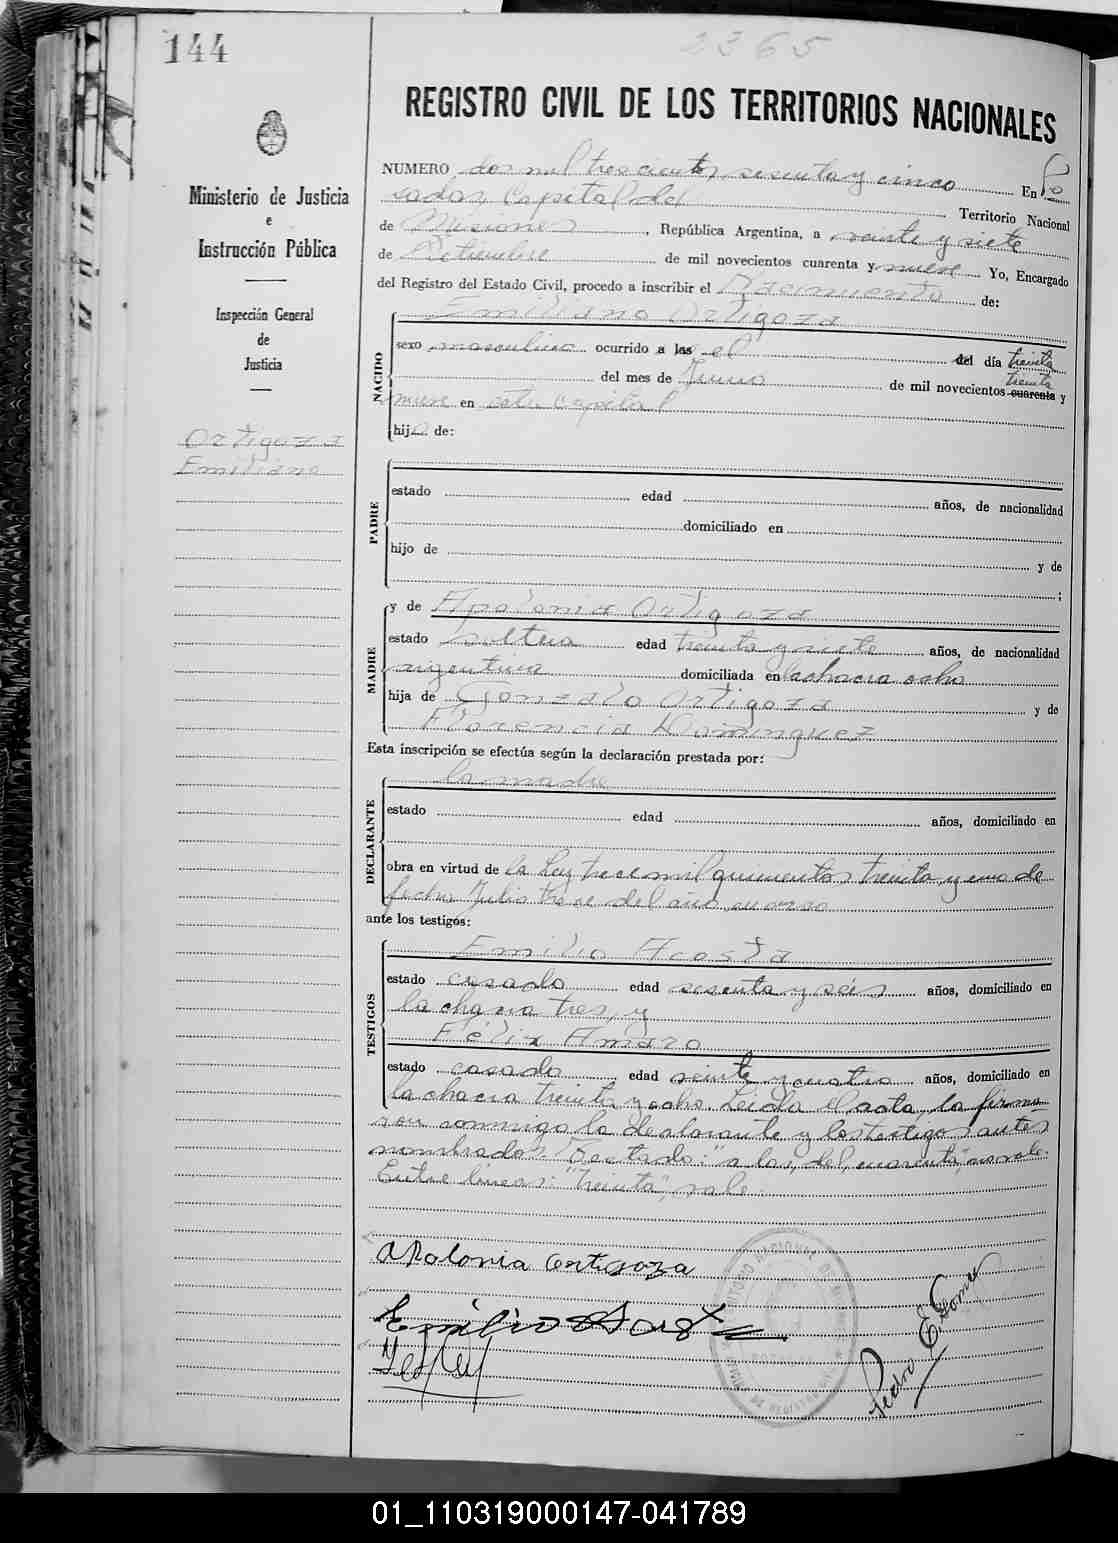 144
2365
REGISTRO CIVIL DE LOS TERRITORIOS NACIONALES
Ministerio de Justicia
e
Instrucción Pública
Inspección General
de
Justicia
Ortigoza
Emiliano
NUMERO dos mil trescientos sesenta y cinco En Po
sadas, Capital del Territorio Nacional
de Misiones, República Argentina, a veinte y siete
de Setiembre de mil novecientos cuarenta y nueve Yo, Encargado
del Registro del Estado Civil, procedo a inscribir el Nacimiento de:
Emiliano Ortigoza
NACIDO
sexo masculino ocurrido a las el del día treinta
del mes de Junio de mil novecientos treinta cuarenta y
nueve en esta Capital
hijo de:
PADRE
estado edad años, de nacionalidad
domiciliado en
hijo de y de
;
MADRE
y de Apolonia Ortigoza
estado soltera edad treinta y siete años, de nacionalidad
argentina domiciliada en la chacra ocho
hija de Gonzalo Ortigoza y de
Florencia Dominguez
Esta inscripción se efectúa según la declaración prestada por:
la madre
DECLARANTE
estado edad años, domiciliado en
obra en virtud de la Ley trece mil quinientos treinta y uno de
fecha Julio trece del año en curso
ante los testigos:
TESTIGOS
Emilio Acosta
estado casado edad sesenta y seis años, domiciliado en
la chacra tres, y
Felix Amaro
estado casado edad veinte y cuatro años, domiciliado en
la chacra treinta y ocho. Leida el acta, la firma
ron conmigo la declarante y los testigos antes
nombrados. Testado: "a las, del, cuarenta", no vale.
Entre lineas: "treinta", vale.
Apolonia Ortigoza
Emilio Acosta
Pedro E. Gomez
01_110319000147-041789